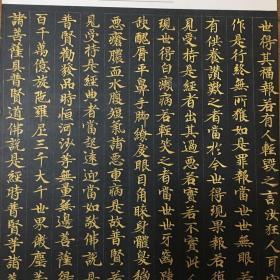 世得其福報若有人輕毀之言汝狂人
作是行終無所獲如是罪報當世世無眼
有供養讚歎之者當於今世得現果報若
見受持是經者出其過惡若實若不實此
現世得白癩病若輕笑之者當世世牙齒
缺醜脣平鼻手脚繚戾眼目角睞身體臭
惡瘡膿血水腹短氣諸惡重病是故普賢
見受持是經典者當起遠迎當如敬佛說是
普賢勸發品時恒河沙等無量無邊菩薩得
百千萬億旋陀羅尼三千大千世界微塵等
諸菩薩具普賢道佛說是經時普賢等諸